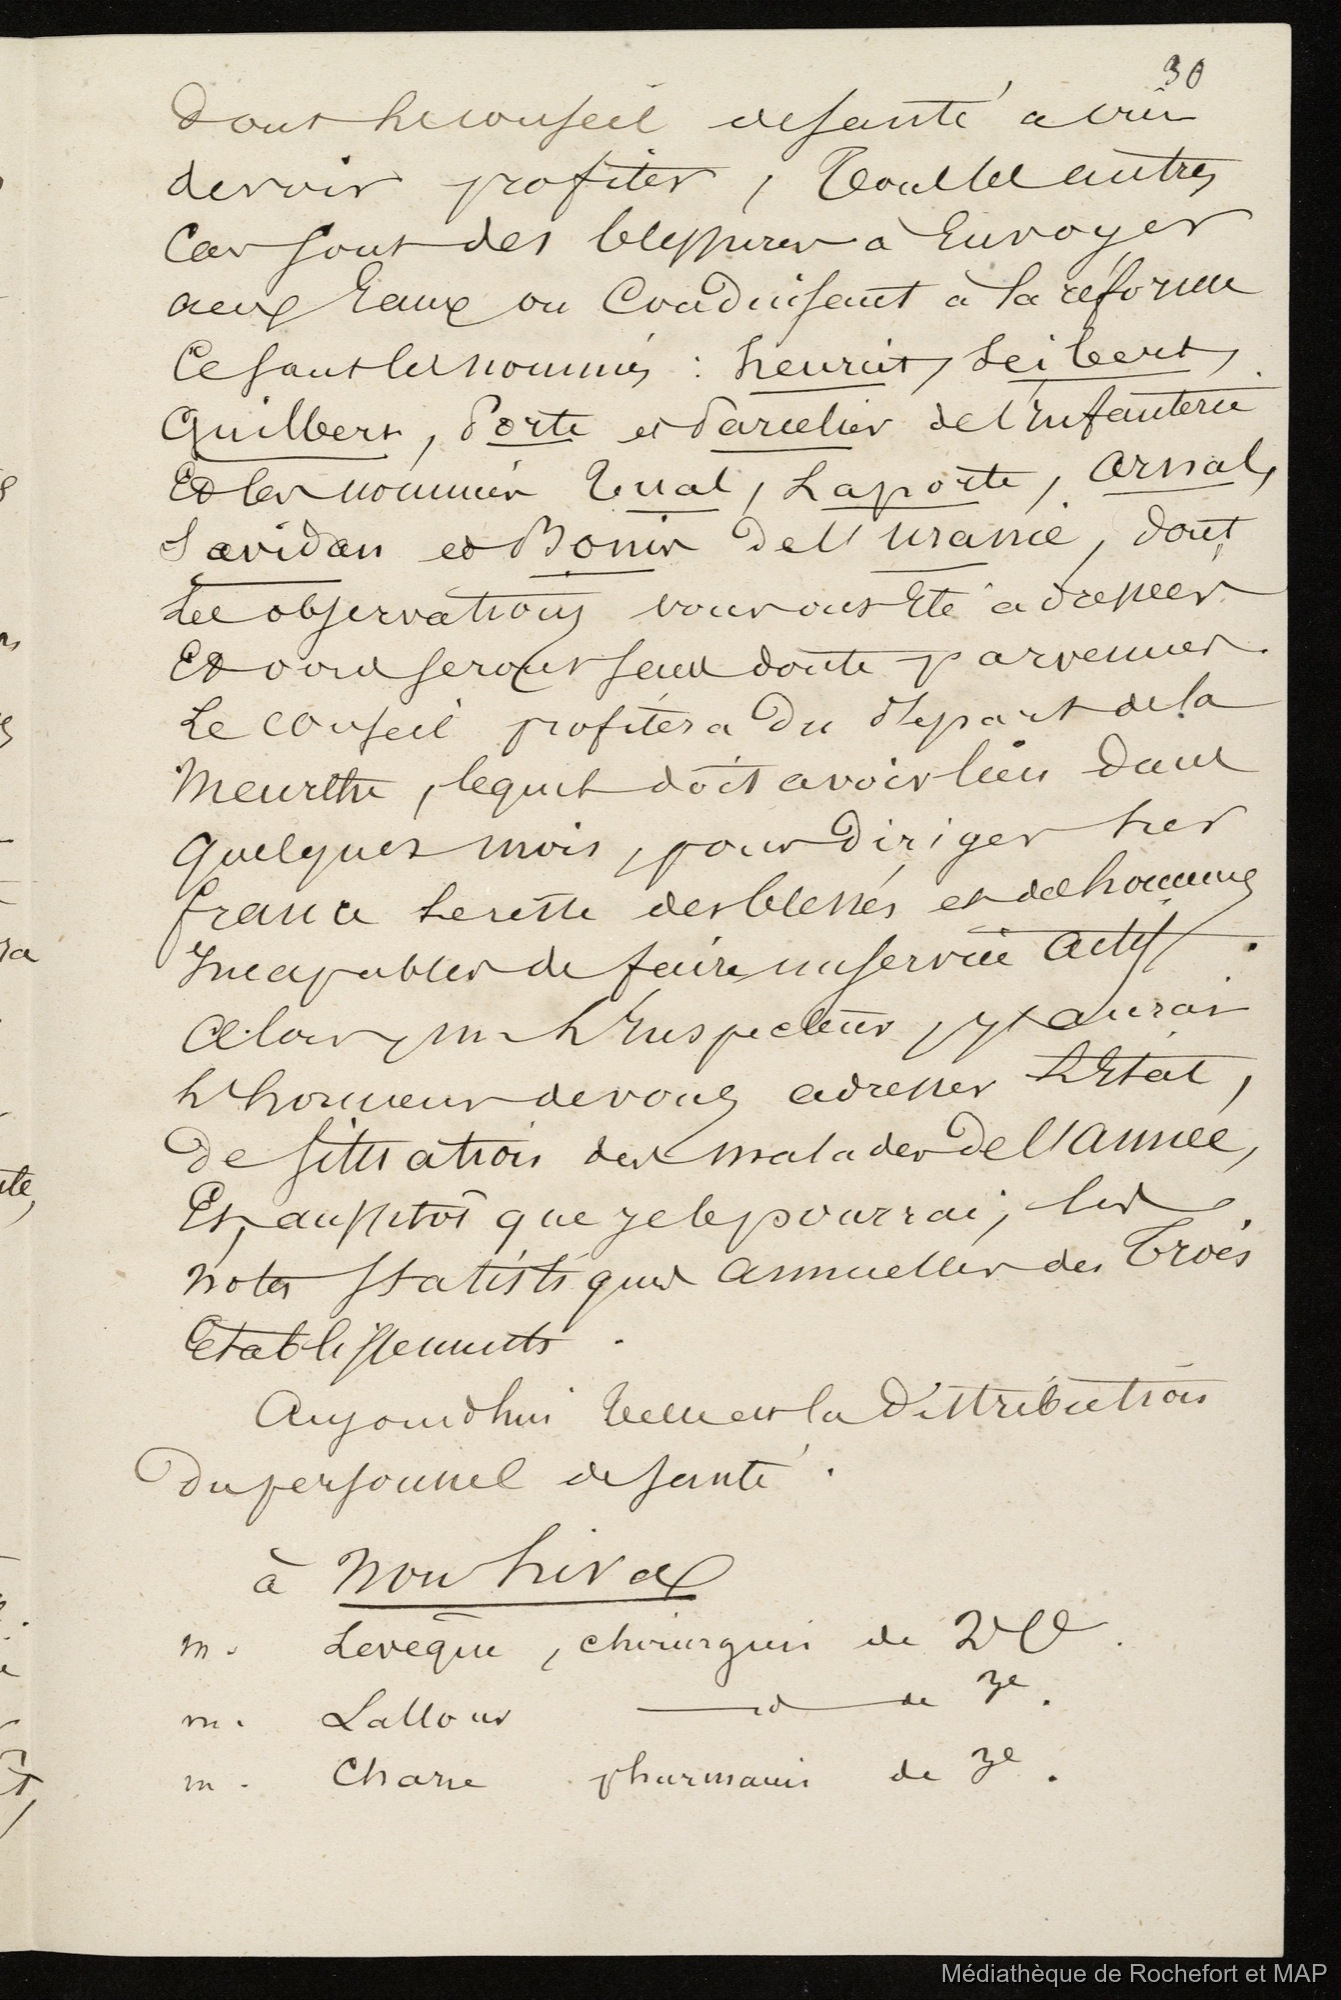 30
dont le conseil de santé a cru
devoir profiter, tous les autres
cas sont des blessures à Envoyer
aux Eaux ou Conduisant à la réforme
Ce sont les nommés : henriet, Leibert,
Guilbert, Porte et Parcelier de l'Infanterie
Et les nommés Tual, Laporte, Arnal,
Savidan et Bonis de l'Uranie, dont
Les observations vous ont Eté adressées
Et vous seront sans doute parvenues.
Le Conseil profitera du départ de la
Meurthe, lequel doit avoir lieu dans
quelques mois, pour diriger sur
france le reste des blessés et des hommes
Incapables de faire un service actif.
Alors, m. L'Inspecteur, j'aurai
L'honneur de vous adresser L'Etat,
de situation des malades de l'année,
Et, aussitôt que je le pourrai, les
notes statistiques annuelles des trois
Etablissements.
Aujourdhui telle est la distribution
du personnel de santé.
à Nou hiva
m. Levêque, chirurgien de 2e Cl.
m. Lallour id de 3e.
m. Charre pharmacien de 3e.
Médiathèque de Rochefort et MAP